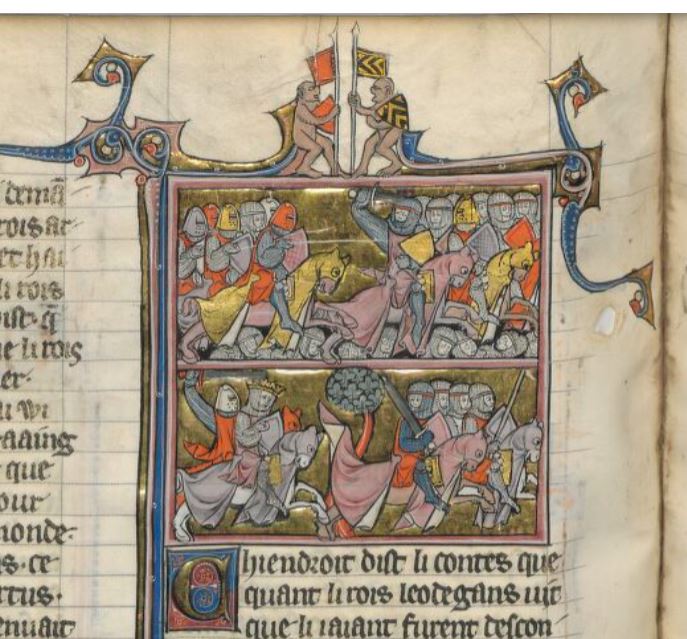 demā
rois ar
et hai
li rois
dist. q̄
ue li rois
er.
li wi
raaing
que
our
monde.
s. ce
rtus.
enuait
Chiendroit dist li contes que
quant li rois leodegans uit
que li iaiant furent descon